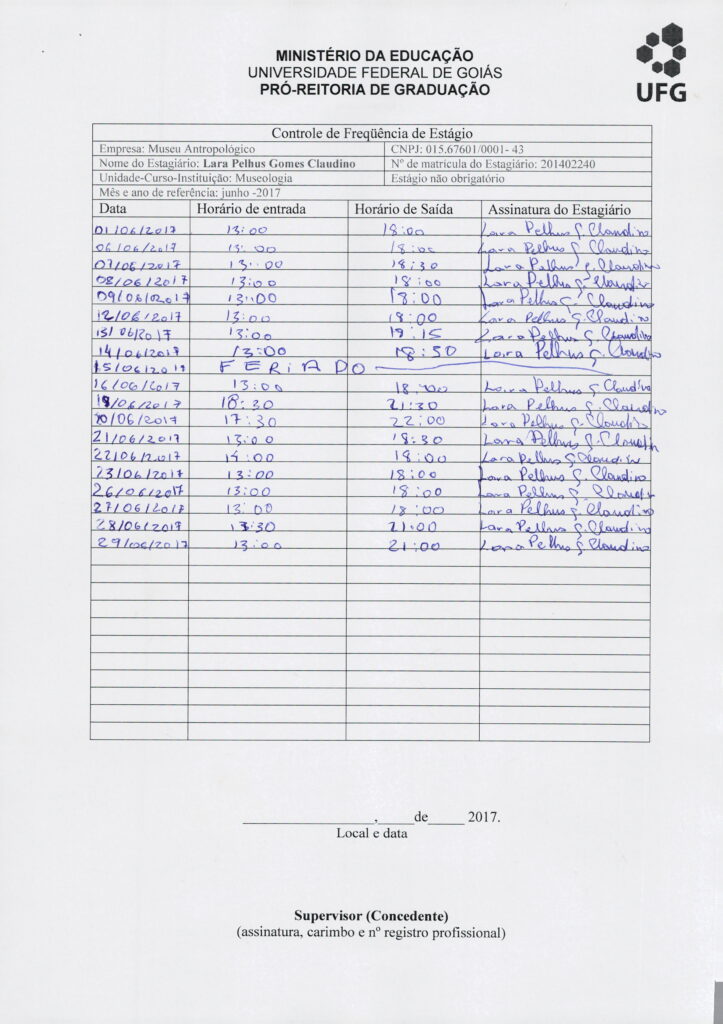 MINISTÉRIO DA EDUCAÇÃO
UNIVERSIDADE FEDERAL DE GOIÁS
PRÓ-REITORIA DE GRADUAÇÃO
UFG
Controle de Freqüência de Estágio
Empresa: Museu Antropológico CNPJ: 015.67601/0001- 43
Nome do Estagiário: Lara Pelhus Gomes Claudino Nº de matrícula do Estagiário: 201402240
Unidade-Curso-Instituição: Museologia Estágio não obrigatório
Mês e ano de referência: junho -2017
Data Horário de entrada Horário de Saída Assinatura do Estagiário
01/06/2017 13:00 18:00 Lara Pelhus G. Claudino
06/06/2017 13:00 18:00 Lara Pelhus G. Claudino
07/06/2017 13:00 18:30 Lara Pelhus G. Claudino
08/06/2017 13:00 18:00 Lara Pelhus G. Claudino
09/06/2017 13:00 18:00 Lara Pelhus G. Claudino
12/06/2017 13:00 18:00 Lara Pelhus G. Claudino
13/06/2017 13:00 19:15 Lara Pelhus G. Claudino
14/06/2017 13:00 18:50 Lara Pelhus G. Claudino
15/06/2017 FERIADO
16/06/2017 13:00 18:00 Lara Pelhus G. Claudino
19/06/2017 18:30 21:30 Lara Pelhus G. Claudino
20/06/2017 17:30 22:00 Lara Pelhus G. Claudino
21/06/2017 13:00 18:30 Lara Pelhus G. Claudino
22/06/2017 14:00 18:00 Lara Pelhus G. Claudino
23/06/2017 13:00 18:00 Lara Pelhus G. Claudino
26/06/2017 13:00 18:00 Lara Pelhus G. Claudino
27/06/2017 13:00 18:00 Lara Pelhus G. Claudino
28/06/2017 13:30 21:00 Lara Pelhus G. Claudino
29/06/2017 13:00 21:00 Lara Pelhus G. Claudino
____________________,_____de_____ 2017.
Local e data
Supervisor (Concedente)
(assinatura, carimbo e nº registro profissional)